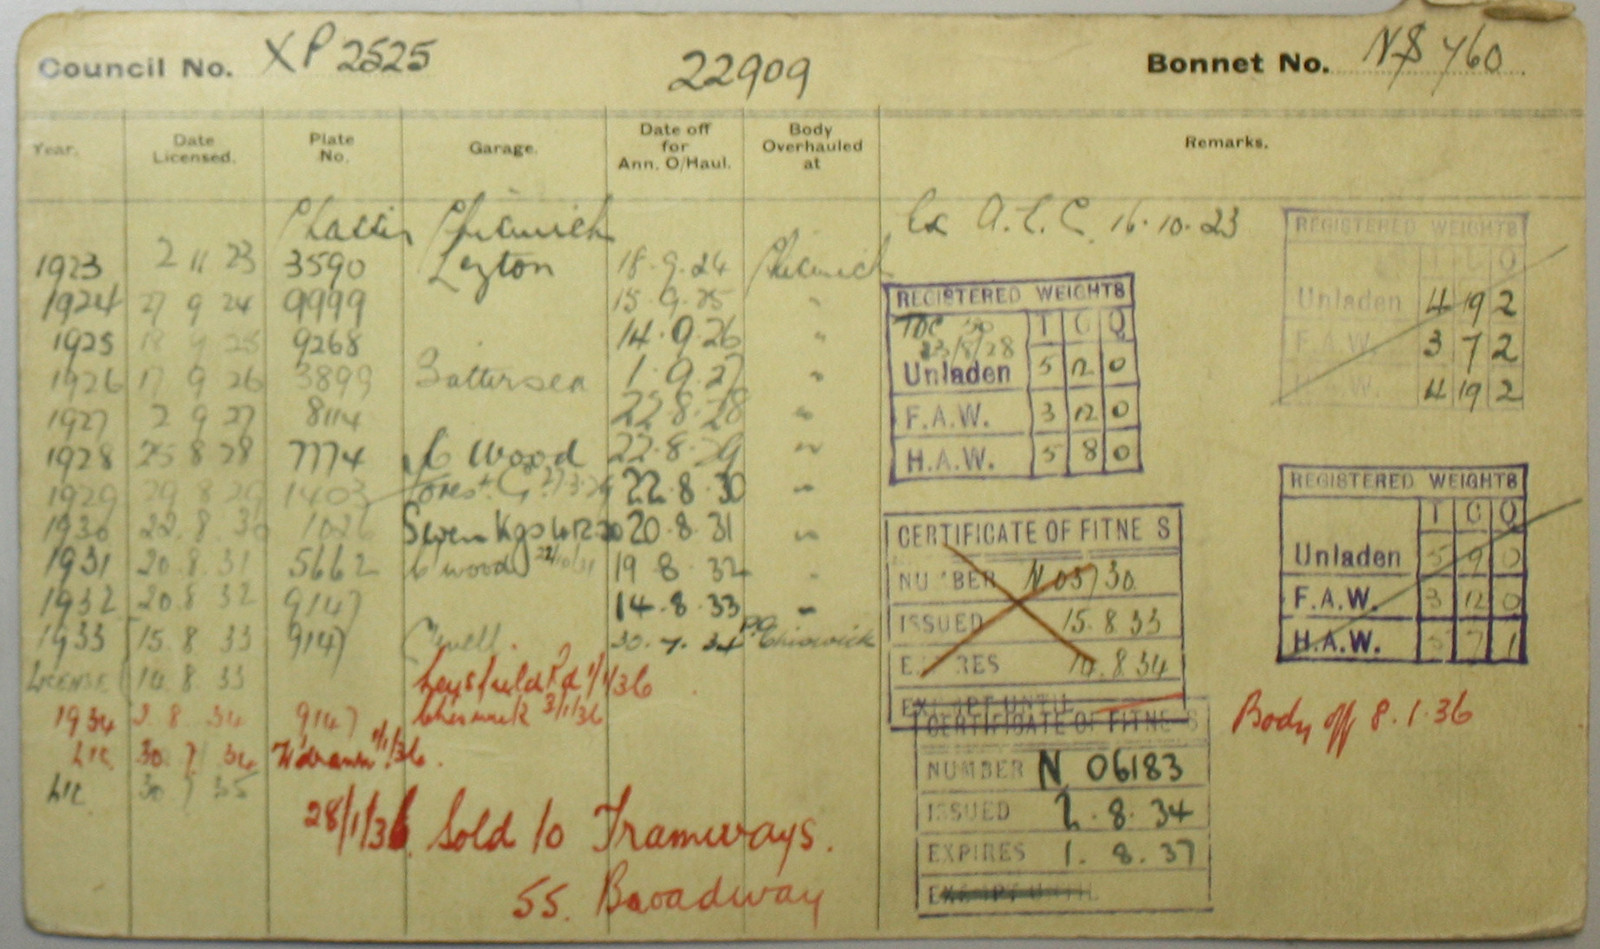 Council No. XP 2525 22909 Bonnet No. NS 460
Year. Date Licensed. Plate No. Garage. Date off for Ann. O/Haul. Body Overhauled at Remarks.
Chassis Chiswick Ex A.E.C. 16.10.23
1923 2 11 23 3590 Leyton 18.9.24 Chiswick
1924 27 9 24 9999 15.9.25 "
1925 18 9 25 9268 14.9.26 "
1926 17 9 26 3899 Battersea 1.9.27 "
1927 2 9 27 8114 22.8.28 "
1928 25 8 28 7774 C Wood 22.8.29 "
1929 29 8 29 1403 Forest G. 22.8.30 "
1930 22.8.30 1026 Seven Kgs 20.8.31 "
1931 20.8.31 5662 C Wood 22/10/31 19 8.32 "
1932 20.8 32 9147 14.8.33 "
1933 15.8.33 9147 30.7.34 Chiswick
LICENSE 14.8.33 Leysfield Rd 1/1/36
1934 2.8.34 9147 Chiswick 3/1/36
LIC 30.7.34 W'drawn 1/1/36.
LIC 30 7 35
28/1/36 Sold to Tramways.
55. Broadway
REGISTERED WEIGHTS
T C Q
Unladen 4 19 2
F.A.W. 3 7 2
H.A.W. 4 19 2
REGISTERED WEIGHTS
23/8/28 T C Q
Unladen 5 12 0
F.A.W. 3 12 0
H.A.W. 5 8 0
REGISTERED WEIGHTS
T C Q
Unladen 5 9 0
F.A.W. 3 12 0
H.A.W. 5 7 1
CERTIFICATE OF FITNE S
NUMBER N 03730
ISSUED 15.8.33
EXPIRES 14.8.34
EXEMPT UNTIL
CERTIFICATE OF FITNESS
NUMBER N 06183
ISSUED 2.8.34
EXPIRES 1.8.37
EXEMPT UNTIL
Body off 8.1.36